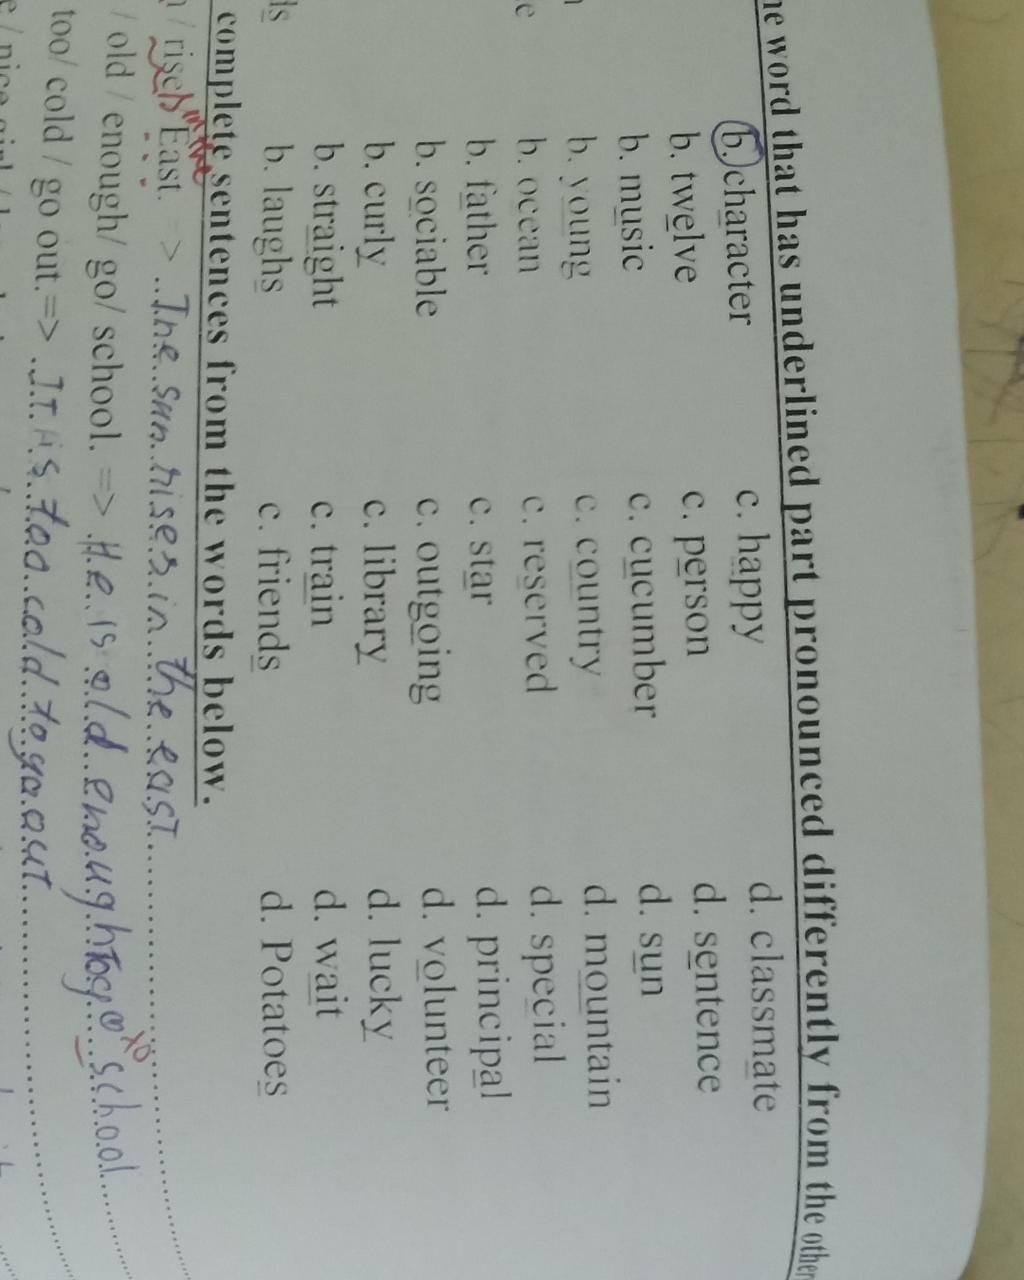 word that has underlined part pronounced differently from the other
b. character c. happy d. classmate
b. twelve c. person d. sentence
b. music c. cucumber d. sun
b. young c. country d. mountain
b. ocean c. reserved d. special
b. father c. star d. principal
b. sociable c. outgoing d. volunteer
b. curly c. library d. lucky
b. straight c. train d. wait
b. laughs c. friends d. Potatoes
complete sentences from the words below.
/ rises in the East. => The sun rises in the east
/ old / enough/ go/ school. => He is old enough to go to school
too/ cold / go out. => It is too cold to go out